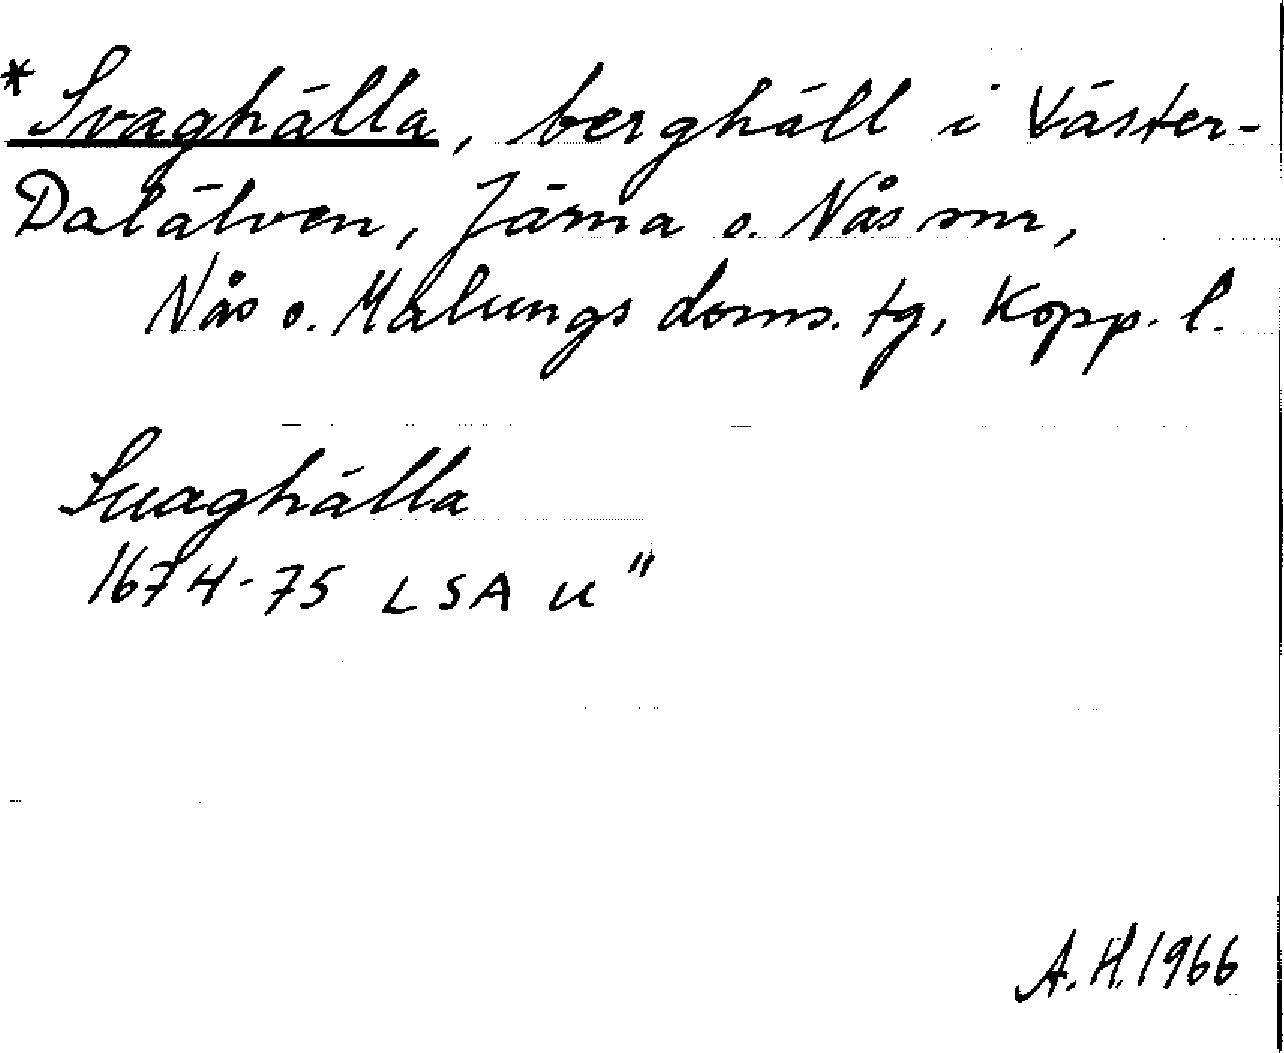 * Svaghälla, berghäll i Väster-
Dalälven, Järna o. Nås snr,
Nås o. Malungs doms. tg, Kopp. l.
Suaghälla
1674-75 LSA U"
A. H. 1966